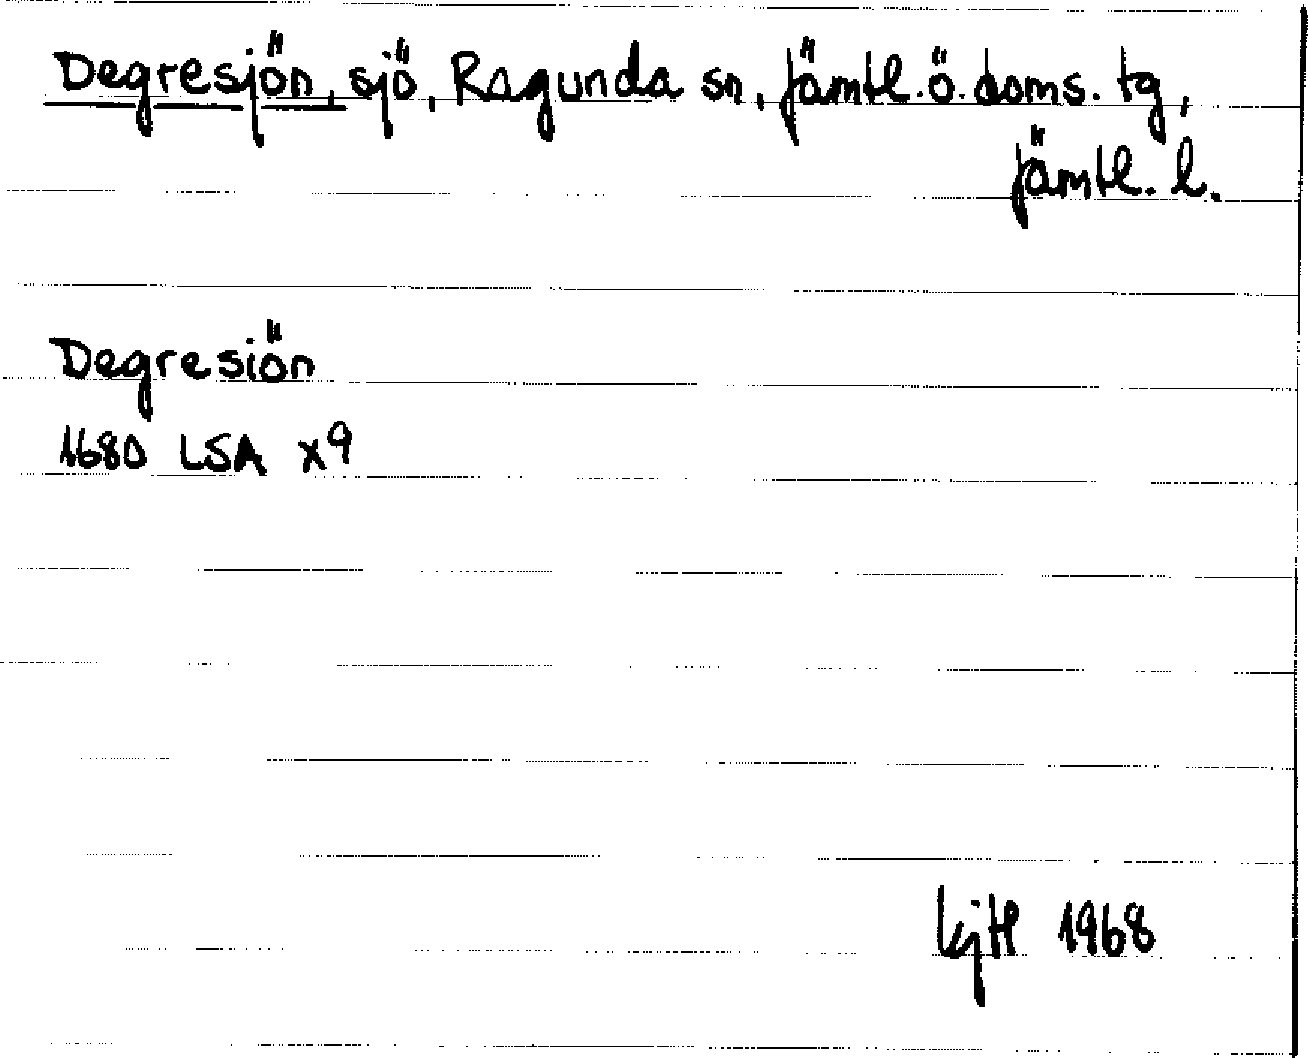 Degresjön, sjö, Ragunda sn, Jämtl. ö. doms. tg,
Jämtl. l.
Degresiön
1680 LSA x9
1968